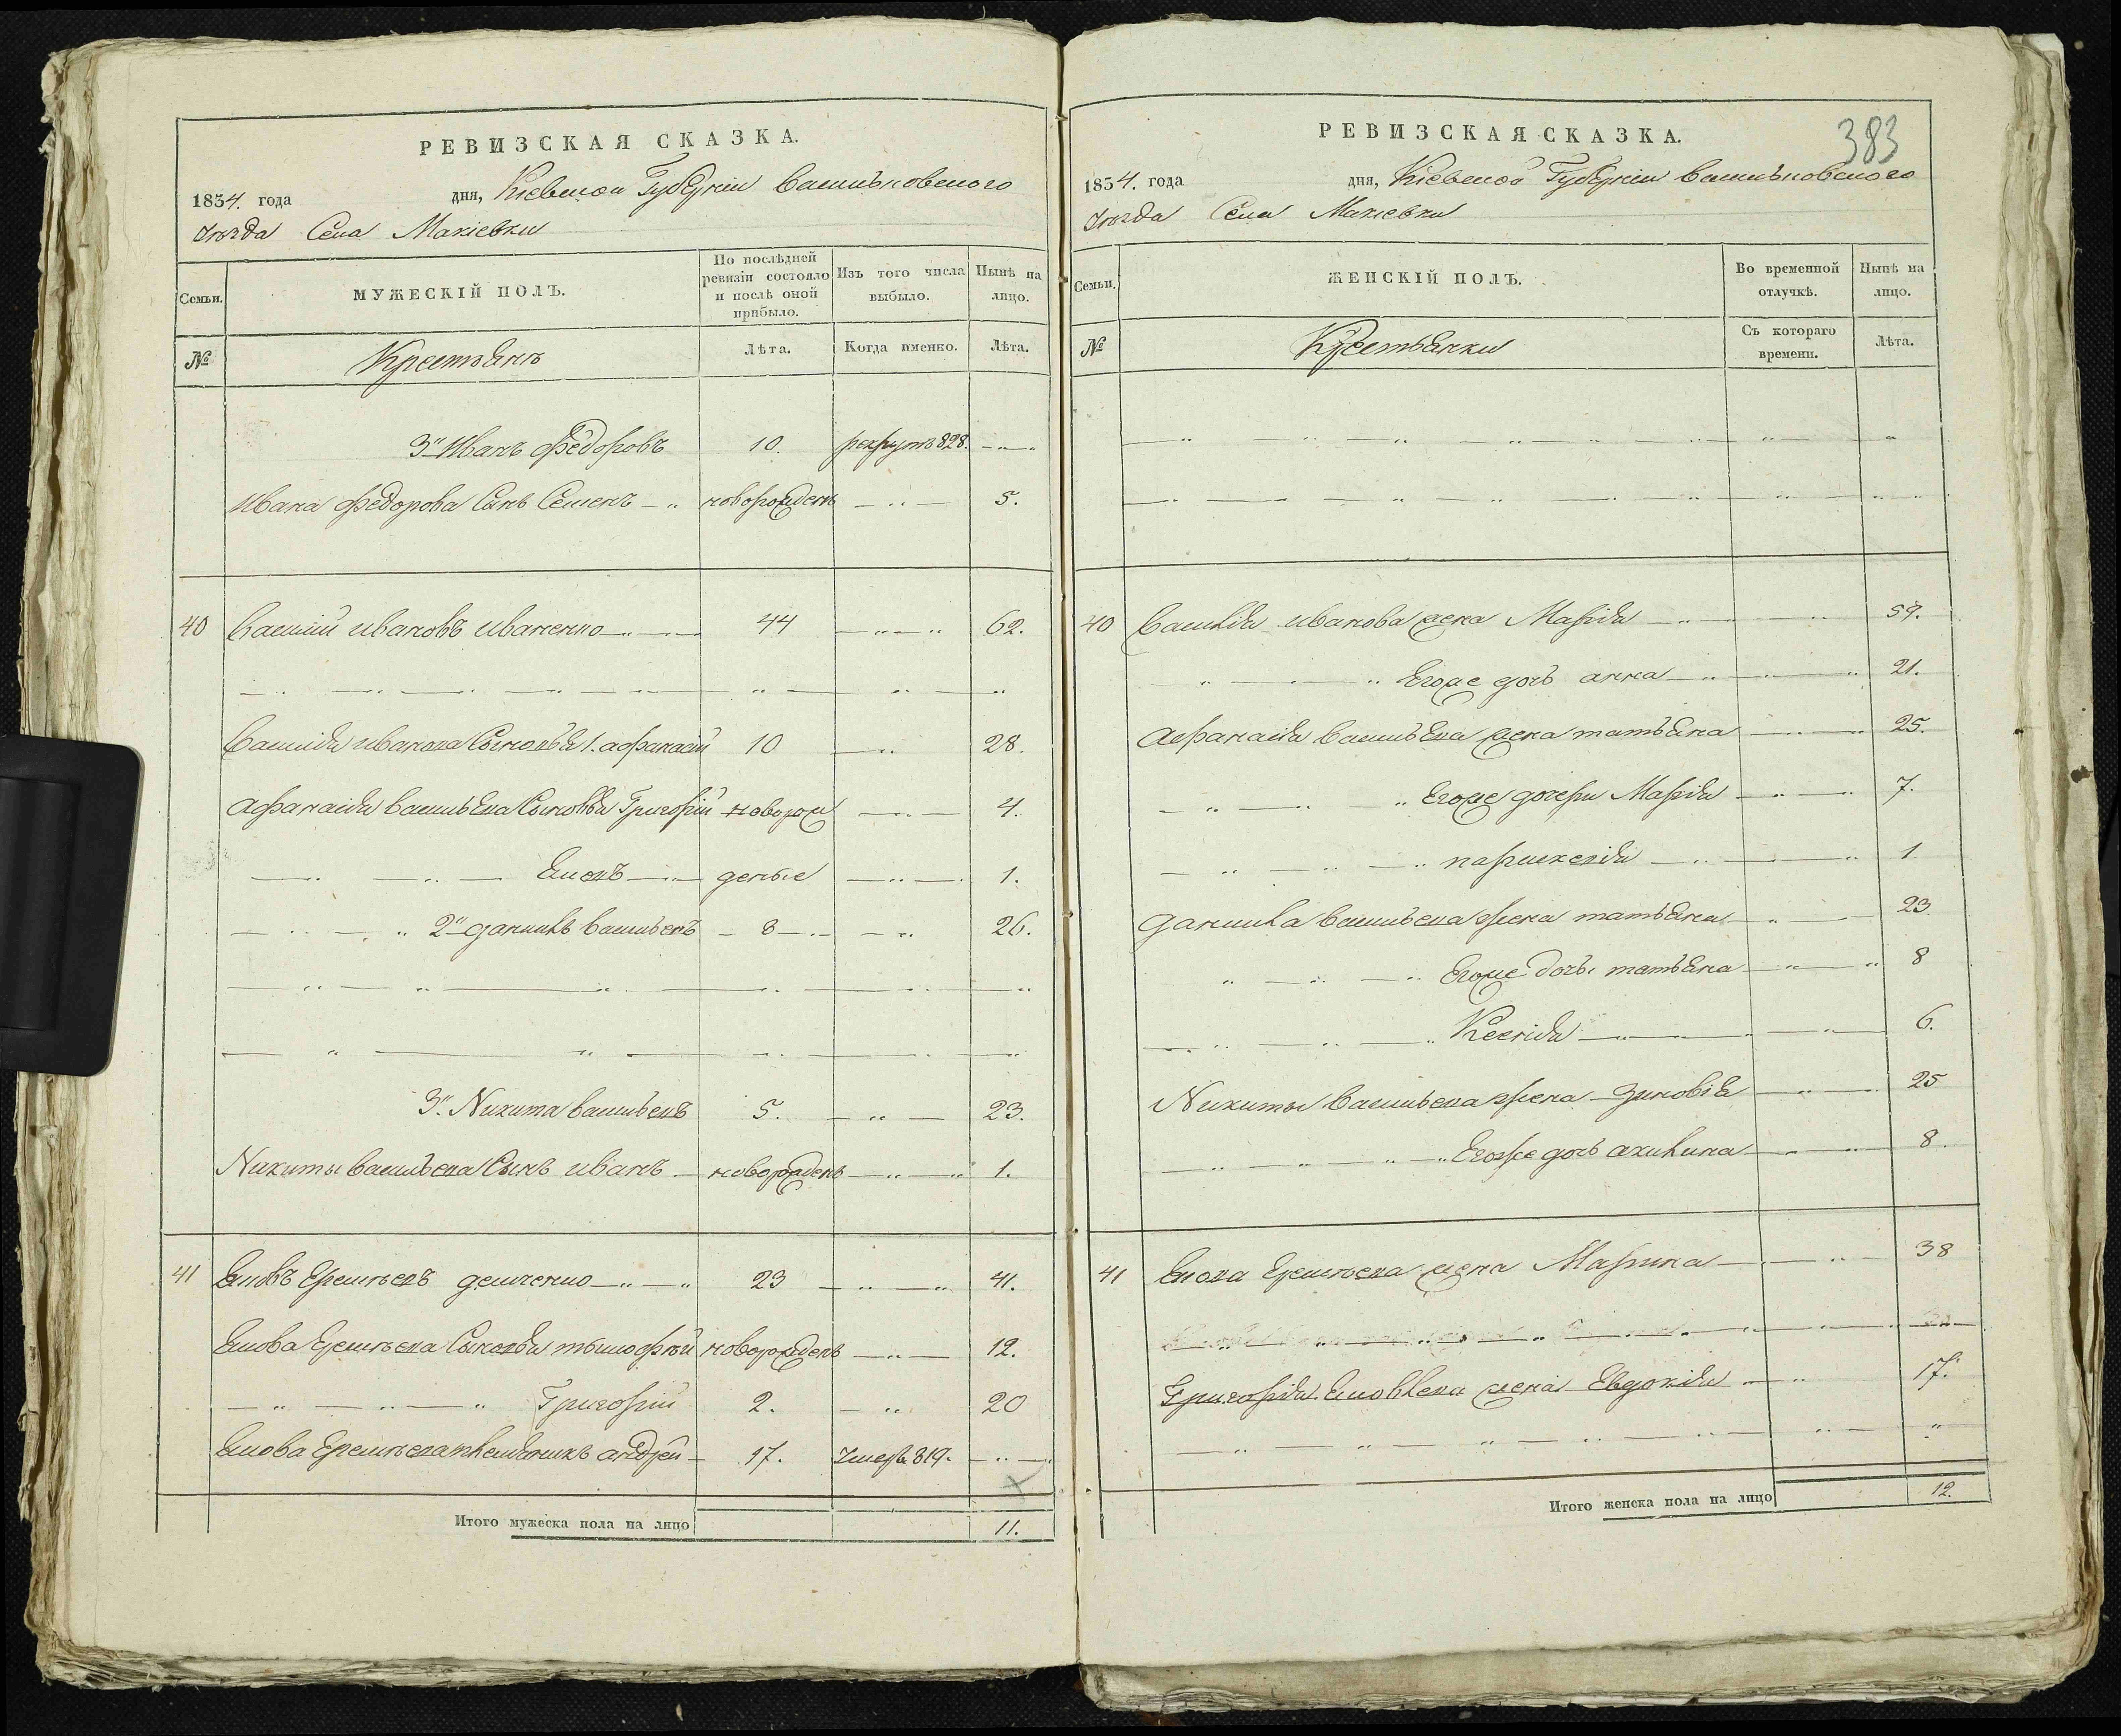 РЕВИЗСКАЯ СКАЗКА.
1834. года дня, Кіевской Губерніи Васильковского
Уѣзда Села Макіевки
Семьи.
МУЖЕСКІЙ ПОЛЪ.
По послѣдней ревизіи состояло и послѣ оной прибыло.
Изъ того числа выбыло.
Нынѣ на лицо.
№
Крестьянъ
Лѣта.
Когда именно.
Лѣта.
3й Иванъ Федоровъ 10. рекрутъ 828.
Ивана Федорова Сынъ Семенъ новорожденъ 5.
40 Василий Ивановъ Иваненко 44 62.
Василія Иванова Сыновья 1. Афанасий 10 28.
Афанасія Васильева Сыновья Григорій новорож 4.
Яковъ деные 1.
2й Данило Васильевъ 8 26.
3й Никита Васильевъ 5. 23.
Никиты Васильева Сынъ Иванъ новорожденъ 1.
41 Яковъ Еремѣевъ Демченко 23 41.
Якова Еремѣева Сыновья тимофѣй новорожденъ 12.
Григорій 2. 20
Якова Еремѣева племѣникъ андрей 17. Умеръ 819.
Итого мужеска пола на лицо 11.
383
РЕВИЗСКАЯ СКАЗКА.
1834. года дня, Кіевской Губерніи Васильковского
Уѣзда Села Макіевки
Семьи.
ЖЕНСКІЙ ПОЛЪ.
Во временной отлучкѣ.
Нынѣ на лицо.
№
Крестьянки
Съ котораго времени.
Лѣта.
40 Василія Иванова жена Марія 59.
Егоже дочь анна 21.
Афанасія Васильева жена татьяна 25.
Егоже дочери Марія 7.
1
Данила Васильева жена татьяна 23
Егоже дочь татьяна 8
Ксенія 6.
Никиты Васильева жена Зиновія 25
Егоже дочь акилина 8.
41 Якова Еремѣева жена Марина 38
Григорія Яковлева жена Евдокія 17.
Итого женска пола на лицо 12.